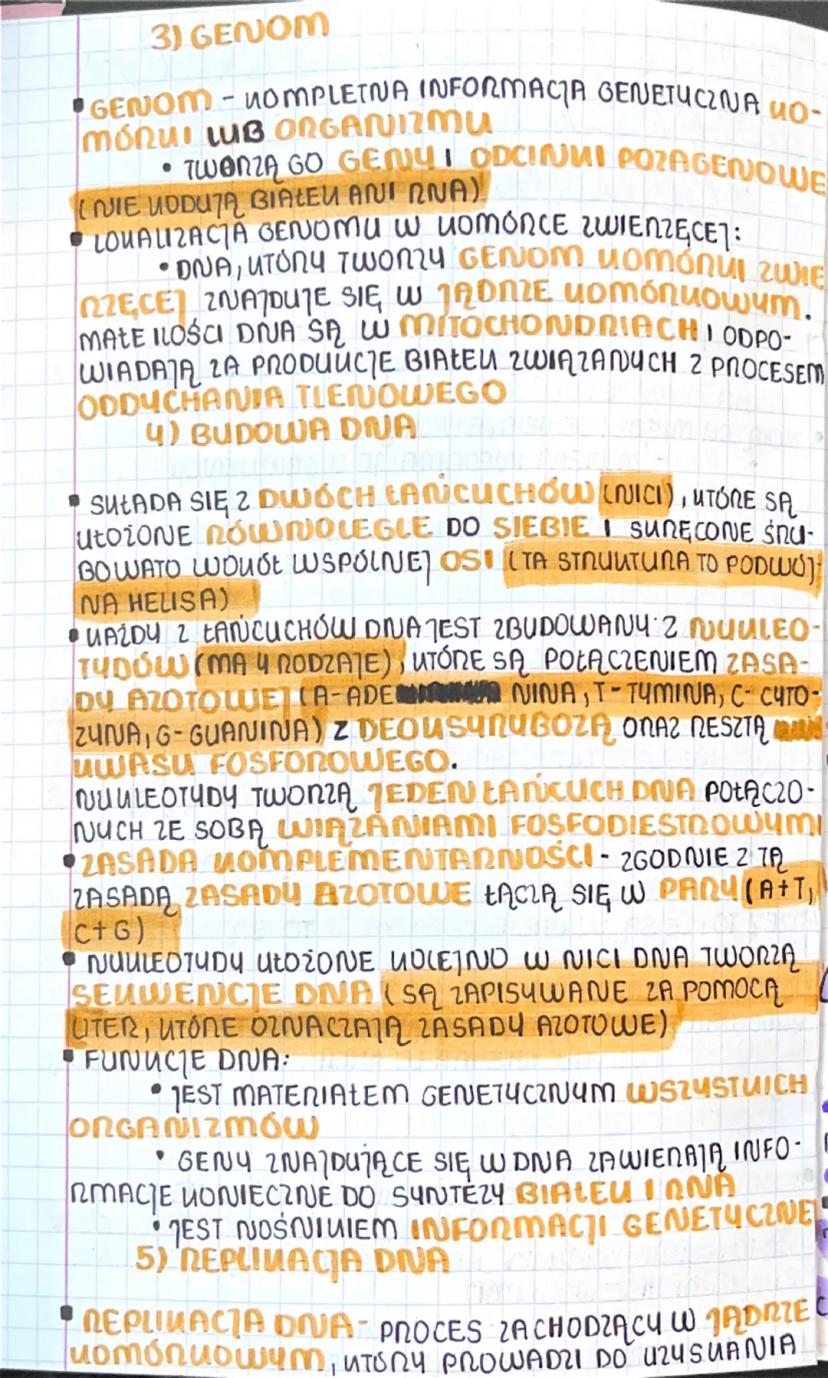 3) GENOM
▪ GENOM - KOMPLETNA INFORMACJA GENETYCZNA KO-
MÓRKI LUB ORGANIZMU
• TWORZĄ GO GENY I ODCINKI POZAGENOWE
(NIE KODUJĄ BIAŁEK ANI RNA)
▪ LOKALIZACJA GENOMU W KOMÓRCE ZWIERZĘCEJ:
• DNA, KTÓRY TWORZY GENOM KOMÓRKI ZWIE
RZĘCEJ ZNAJDUJE SIĘ W JĄDRZE KOMÓRKOWYM.
MAŁE ILOŚCI DNA SĄ W MITOCHONDRIACH I ODPO-
WIADAJĄ ZA PRODUKCJE BIAŁEK ZWIĄZANYCH Z PROCESEM
ODDYCHANIA TLENOWEGO
4) BUDOWA DNA
▪ SKŁADA SIĘ Z DWÓCH ŁAŃCUCHÓW (NICI), KTÓRE SĄ
UŁOŻONE RÓWNOLEGLE DO SIEBIE I SKRĘCONE ŚRU-
BOWATO WOKÓŁ WSPÓLNEJ OSI (TA STRUKTURA TO PODWÓJ-
NA HELISA)
▪ KAŻDY Z ŁAŃCUCHÓW DNA JEST ZBUDOWANY Z NUKLEO-
TYDÓW (MA 4 RODZAJE), KTÓRE SĄ POŁĄCZENIEM ZASA-
DY AZOTOWEJ (A-ADE NINA, T-TYMINA, C-CYTO-
ZYNA, G-GUANINA) Z DEOKSYRYBOZĄ ORAZ RESZTĄ
KWASU FOSFOROWEGO.
NUKLEOTYDY TWORZĄ JEDEN ŁAŃCUCH DNA POŁĄCZO-
NYCH ZE SOBĄ WIĄZANIAMI FOSFODIESTROWYMI
▪ ZASADA KOMPLEMENTARNOŚCI - ZGODNIE Z TĄ
ZASADĄ ZASADY AZOTOWE ŁĄCZĄ SIĘ W PARY (A+T,
C+G)
▪ NUKLEOTYDY UŁOŻONE KOLEJNO W NICI DNA TWORZĄ
SEKWENCJE DNA (SĄ ZAPISYWANE ZA POMOCĄ
LITER, KTÓRE OZNACZAJĄ ZASADY AZOTOWE)
▪ FUNKCJE DNA:
• JEST MATERIAŁEM GENETYCZNYM WSZYSTKICH
ORGANIZMÓW
• GENY ZNAJDUJĄCE SIĘ W DNA ZAWIERAJĄ INFO-
RMACJE KONIECZNE DO SYNTEZY BIAŁEK I RNA
• JEST NOŚNIKIEM INFORMACJI GENETYCZNEJ
5) REPLIKACJA DNA
▪ REPLIKACJA DNA - PROCES ZACHODZĄCY W JĄDRZE
KOMÓRKOWYM, KTÓRY PROWADZI DO UZYSKANIA